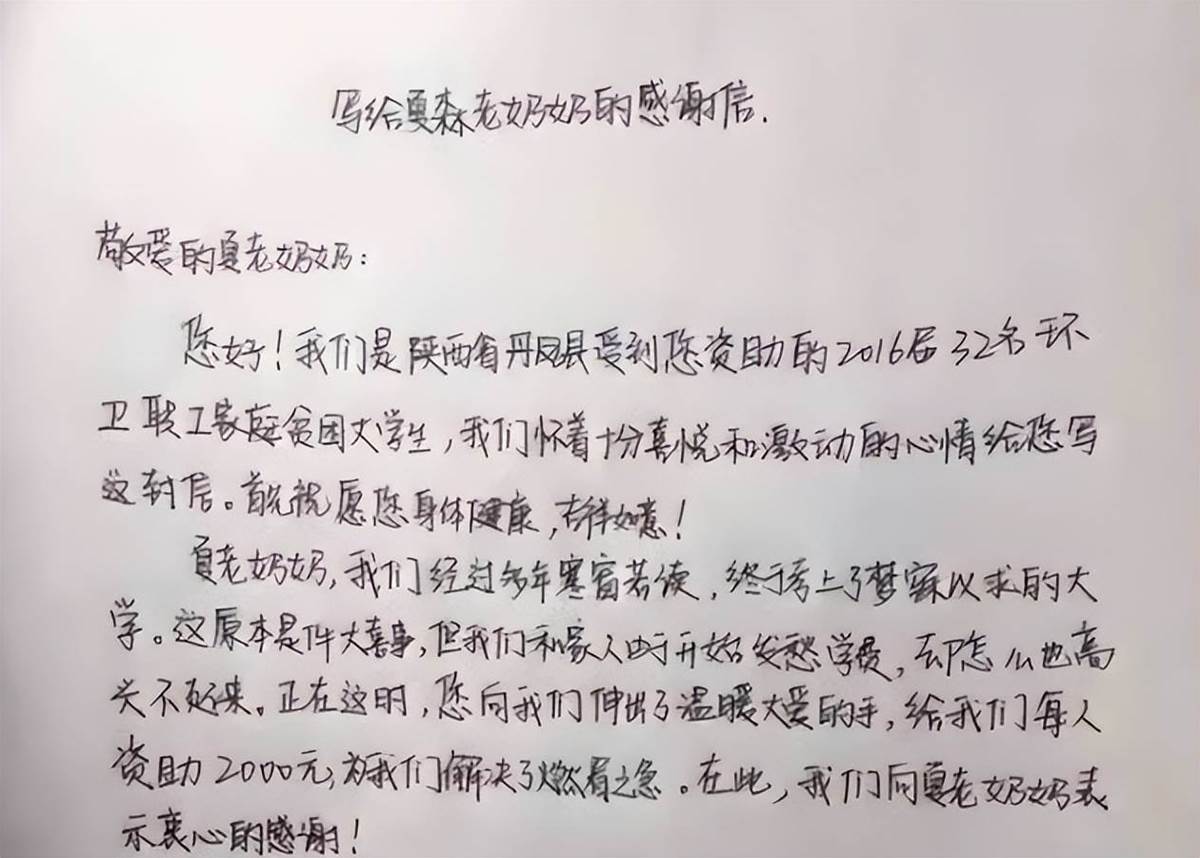 写给夏森老奶奶的感谢信.
敬爱的夏老奶奶：
您好！我们是陕西省丹凤县受到您资助的2016届32名环
卫职工家庭贫困大学生，我们怀着十分喜悦和激动的心情给您写
这封信。首先祝愿您身体健康，吉祥如意！
夏老奶奶，我们经过多年寒窗苦读，终于考上了梦寐以求的大
学。这原本是件大喜事，但我们和家人由于开始发愁学费，却怎么也高
兴不起来。正在这时，您向我们伸出了温暖大爱的手，给我们每人
资助2000元，为我们解决了燃眉之急。在此，我们向夏老奶奶表
示衷心的感谢！